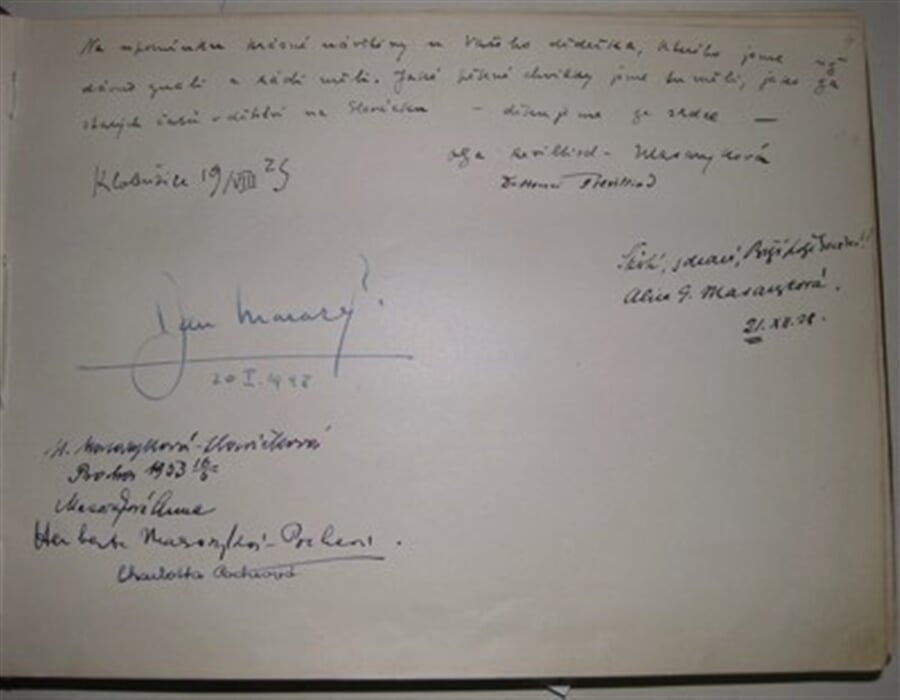 Na upomínku krásné návštěvy u Vašeho dědečka, kterého jsme už
dávno znali a rádi měli. Jaké pěkné chvilky jsme tu měli, jako za
starých časů v dětství na Slovácku — děkujeme ze srdce —
Olga Revilliod - Masaryková
Klobušice 19/VIII 25
Revilliod
Alice G. Masaryková.
21. XII. 28.
Jan Masaryk.
20 I. 1948
H. Masaryková-
Praha 1953
Masaryková Anna
Herberta Masaryková-
Charlotta